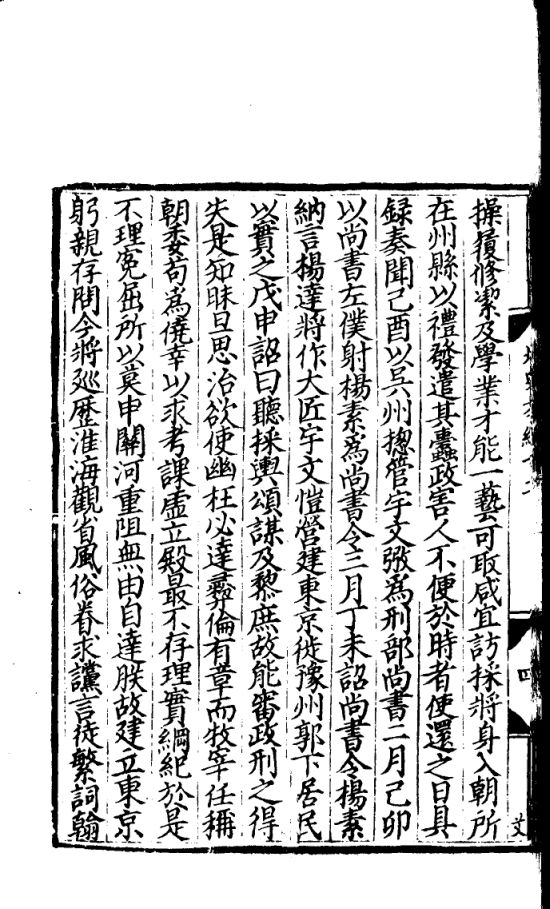 操履修潔及學業才能一藝可取咸宜訪採將身入朝所
在州縣以禮發遣其蠹政害人不便於時者使還之日具
録奏聞己酉以吳州揔管宇文㢸爲刑部尚書二月己卯
以尚書左僕射楊素爲尚書令三月丁未詔尚書令楊素
納言楊達將作大匠宇文愷營建東京徙豫州郭下居民
以實之戊申詔曰聽採輿頌謀及黎庶故能審政刑之得
失是知昧旦思治欲使幽枉必達彛倫有章而牧宰任稱
朝委苟爲僥幸以求考課虛立殿最不存理實綱紀於是
不理寃屈所以莫申關河重阻無由自達朕故建立東京
躬親存問今將廵歷淮海觀省風俗眷求讜言徒繁詞翰
四